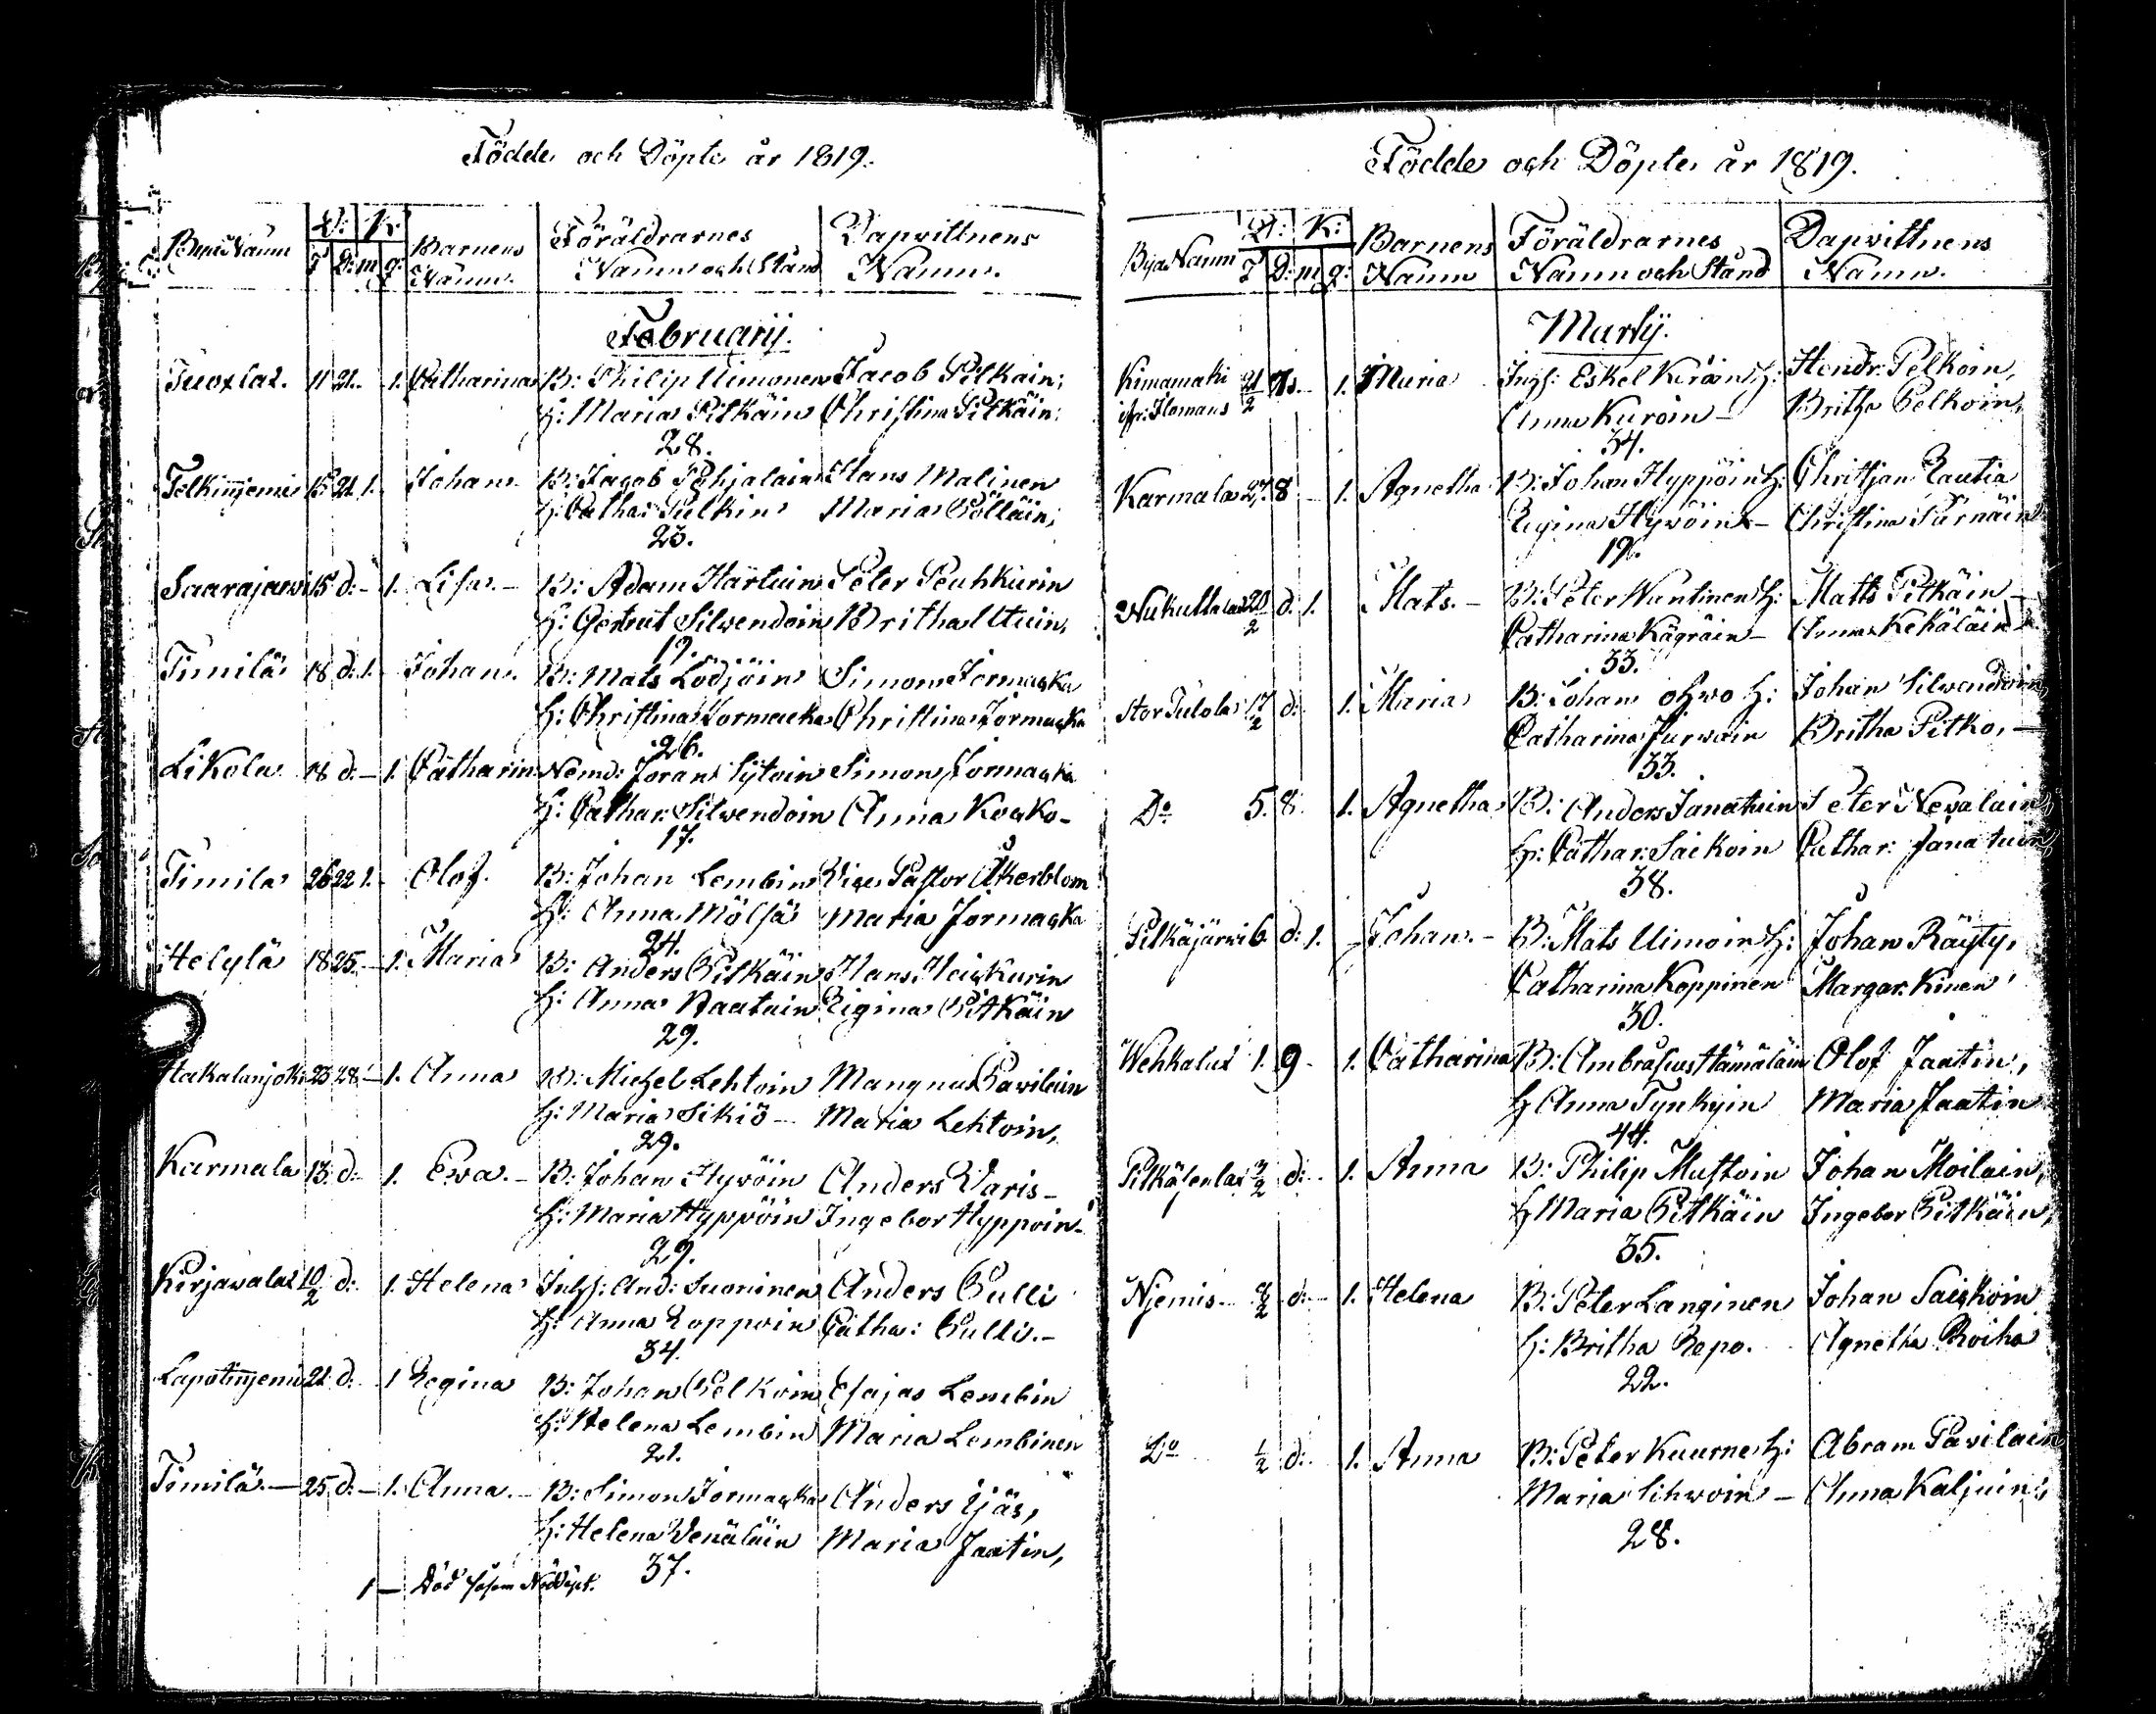 Födde och Döpte år 1819.
Byars Namn D: K: Barnens Föräldrarnes Dopvittnens
F D: m q: Namn. Namn och Stånd Namn.
Februarij.
11 21. 1. Catharina B: Philip Uimonen Jacob Pitkäin;
H: Maria Pitkäin Christina Pitkäin:
28.
15 21. 1. Johan B: Jacob Pohjalain Hans Malinen
H: Catha: Pulkin Maria Pölläin;
23.
Saarajarwi 15 d: - 1. Lisa. - B: Adam Härtuin Peter Peuhkurin
H: Gertrut Silvendoin Britha Utuin,
19.
Timilä 18 d: 1. Johan. B: Mats Lödjöin Simon Jormacka
H: Christina Jormacka Christina Jormacka
26.
Likola 18 d: - 1. Catharin: Nemd: Jöran Sytoin Simon Jormacka
H: Cathar: Silvendoin Anna Kocko -
17.
Timila 26 22 1. Olof. B: Johan Lembin Vice Pastor Åkerblom
H: Anna Mölsä Maria Jormacka
24.
Helylä 18 25. - 1. Maria B: Anders Pitkäin Hans Heickurin
H: Anna Naatuin Rigina Pitkäin
29.
23 28. - 1. Anna B: Michel Lehtoin Mangnus Pavilain
H: Maria Sikiö - Maria Lehtoin,
29.
Karmala 13 d: - 1. Ewa. - B: Johan Hyvöin Anders Varis -
H: Maria Hyppöin Ingebor Hyppoin.
29.
Kirjavala 10/2 d: 1. Helena Inhs: And: Suoninen Anders Pulli
H: Anna Loppoin Catha: Pulli. -
34.
21 d: 1 Regina B: Johan Pelkoin Esajas Lembin
H: Helena Lembin Maria Lembinen
21.
Timilä. - 25 d: - 1. Anna. - B: Simon Jormacka Anders Ijäs,
H: Helena Venäläin Maria Jaatin,
37.
1 - Död såsom Nöddöpt.
Födde och Döpte år 1819.
Byars Namn D: K: Barnens Föräldrarnes Dopvittnens
F D: m q: Namn Namn och Stånd Namn.
Martij.
Kimamaki 21/2 1. Maria Inhs: Eskel Kuroin H: Hendr: Pelkoin,
Ilomans Anna Kuroin - Britha Pelkoin,
34.
Karmala 27. 8 - 1. Agnetha B: Johan Hyppöin H: Christjan Rautia
Regina Hyvöin - Christina Pärnäin
19.
20/2 d: 1. Mats. - B: Peter Wantinen H: Matts Pitkäin -
Catharina Kägräin - Anna Kekäläin -
33.
Stor Tulola 17/2 d: 1. Maria B: Johan Ohvo H: Johan Silvendoin
Catharina Jurvain Britha Pitko, -
33.
Do 5. 8. 1. Agnetha B: Anders Janatuin Peter Nevalain
H: Cathar: Saikoin Cathar: Janatuin
38.
Pitkäjärwi 6 d: 1. Johan. - B: Mats Uimoin H: Johan Räyty,
Catharina Koppinen Margar: Kinen
30.
Wehkala 1. 9 - 1. Catharina B: Ambrosius Hämäläin Olof Jaatin,
H Anna Tynkyin Maria Jaatin
44.
3/2 d: - 1. Anna B: Philip Mustoin Johan Moilain,
H Maria Pitkäin Ingebor Pitkäin,
35.
Njemis - d: - 1. Helena B: Peter Langinen Johan Saickoin
H: Britha Repo. Agnetha Roiha
22.
Do 1/2 d: 1. Anna B: Peter Kuurne H: Abram Pavilain
Maria Sihvoin - Anna Kaljuin,
28.